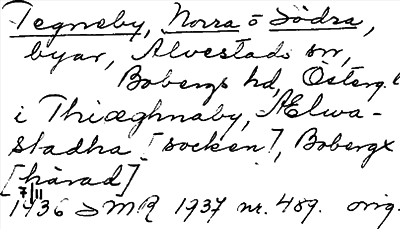 Tegneby, Norra o Södra,
byar, Alvestads sn,
Bobergs hd, Österg.l
i Thiæghnaby, Ælwa-
stadha [socken], Bobergx
[härad]
7/11
1436 SMR 1937 nr. 489. orig.